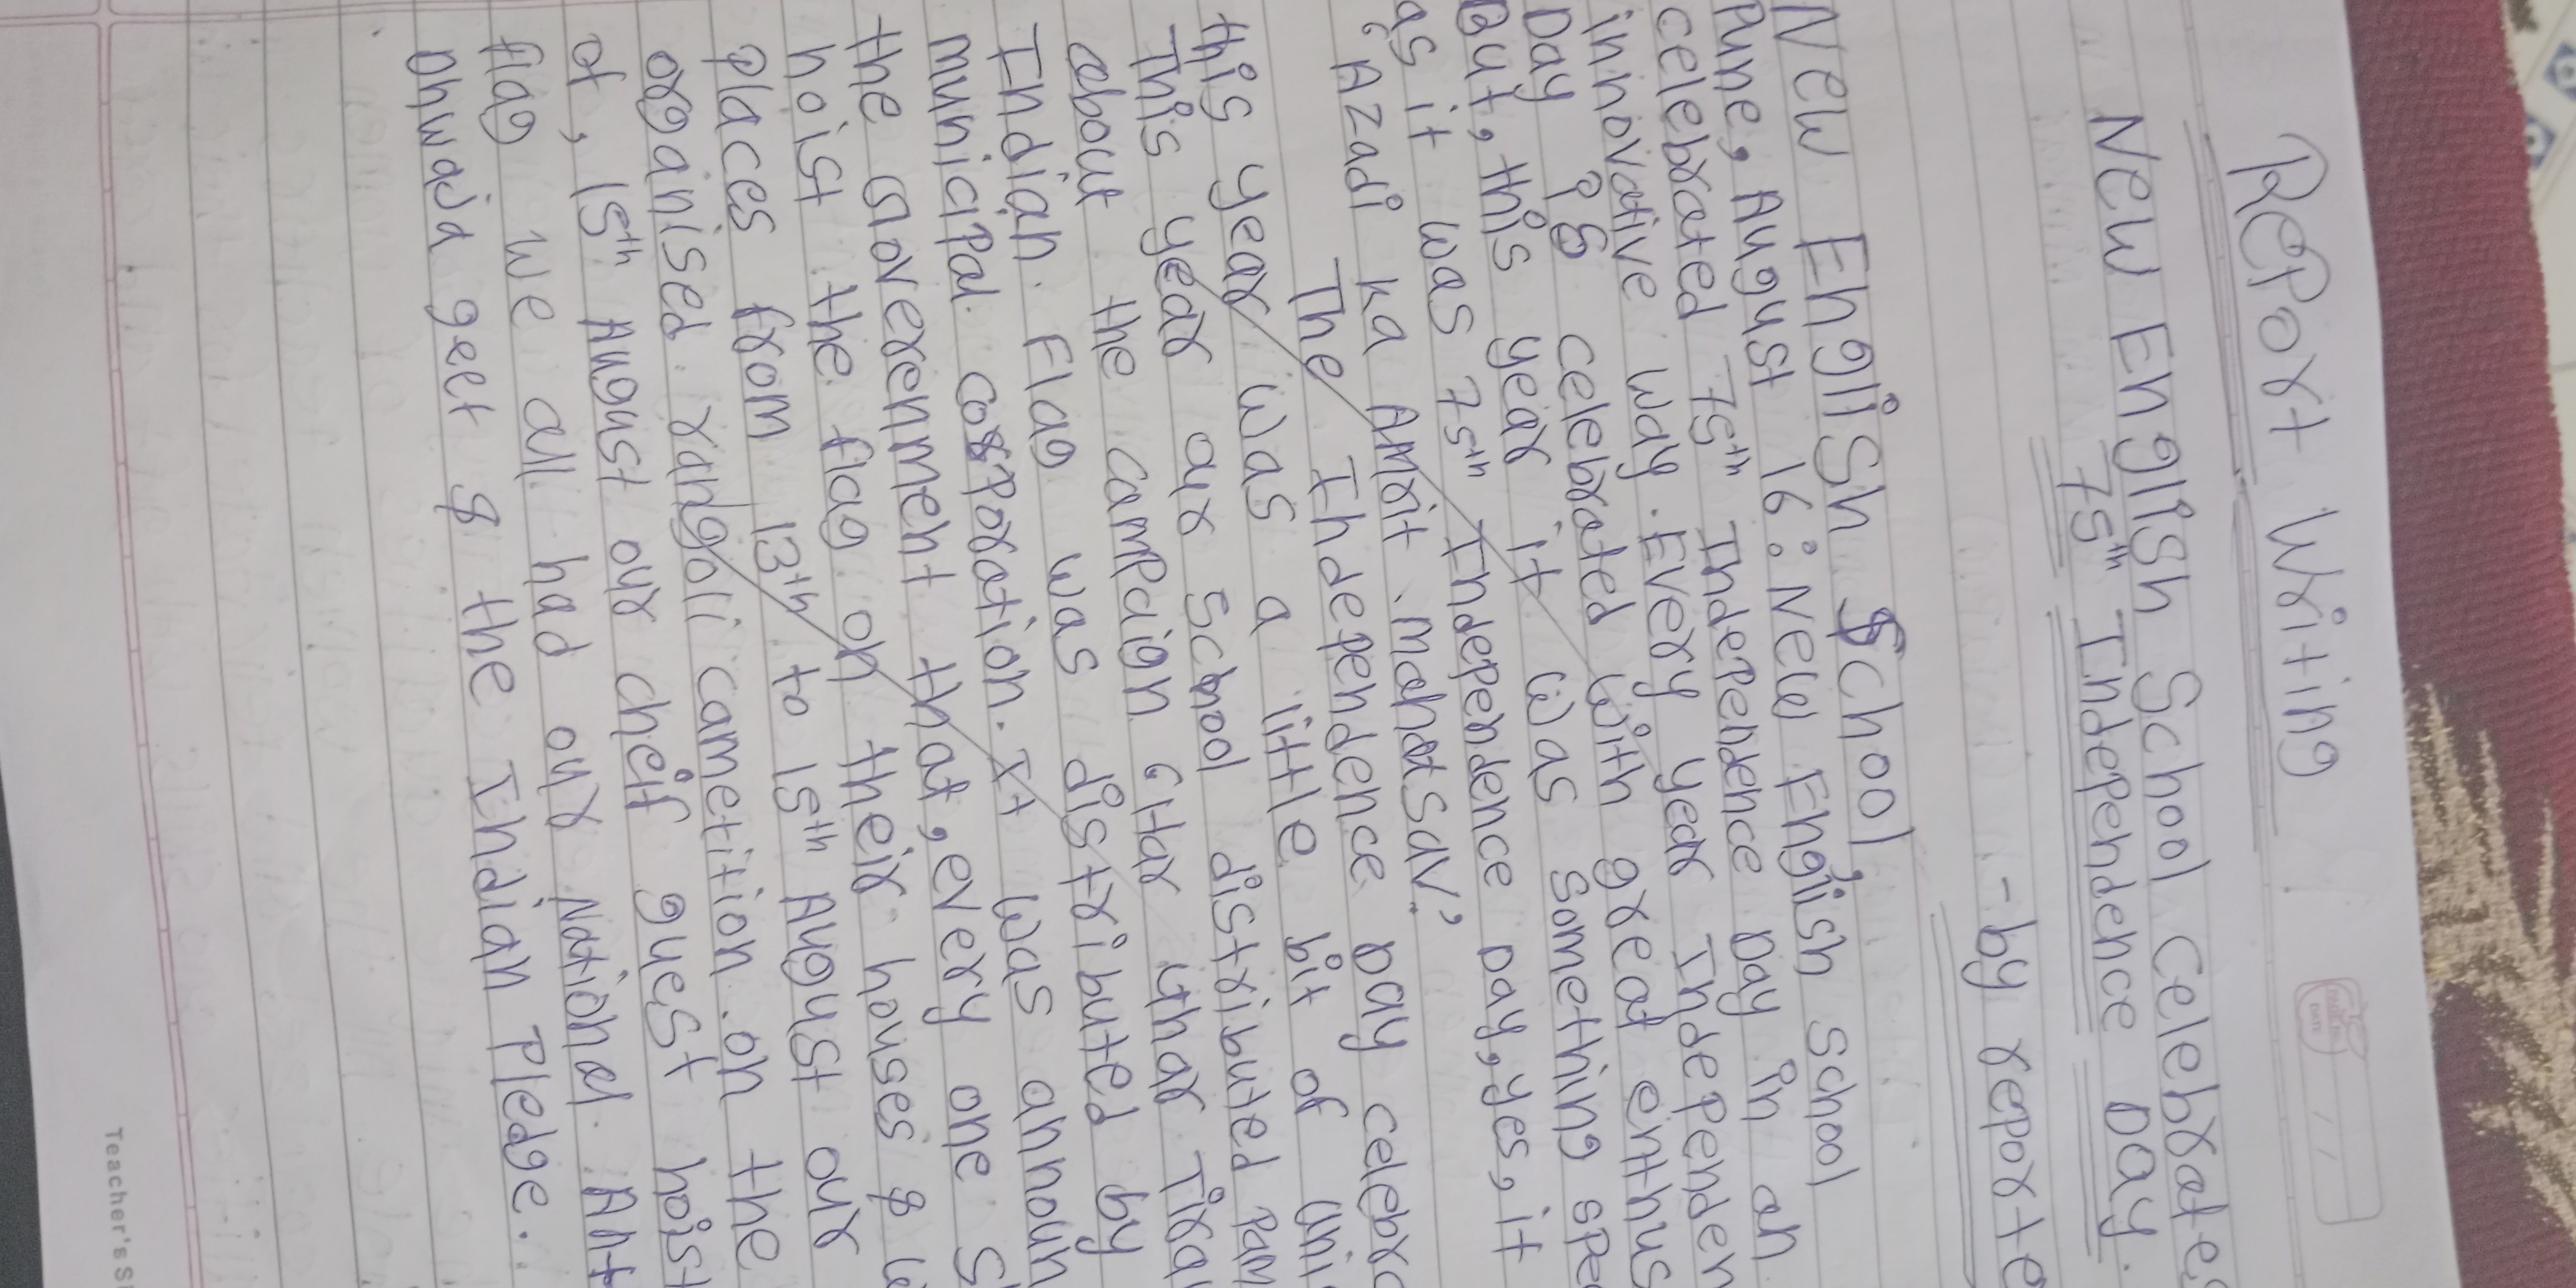 Report Writing
New English School celebrates
75th Independence Day.
-by reporte
New English School
Pune, August 16: New English school
celebrated 75th Independence Day in an
innovative way. Every year Independen
Day is celebrated with great enthus
But, this year it was something spe
as it was 75th Independence Day, yes, it
'Azadi ka Amrit mahotsav.'
The Independence Day celebra
this year was a little bit of uni
This year our school distributed Pam
about the campaign 'Har Ghar Tira
Indian. Flag was distributed by
municipal corporation. It was announ
the Goverenment that, every one s
hoist the flag on their houses &
places from 13th to 15th August our
organised rangoli cametition on the
of, 15th August our cheif guest hoist
flag we all had our National Ant
Dhwaja geet & the Indian Pledge.
Teacher's Si